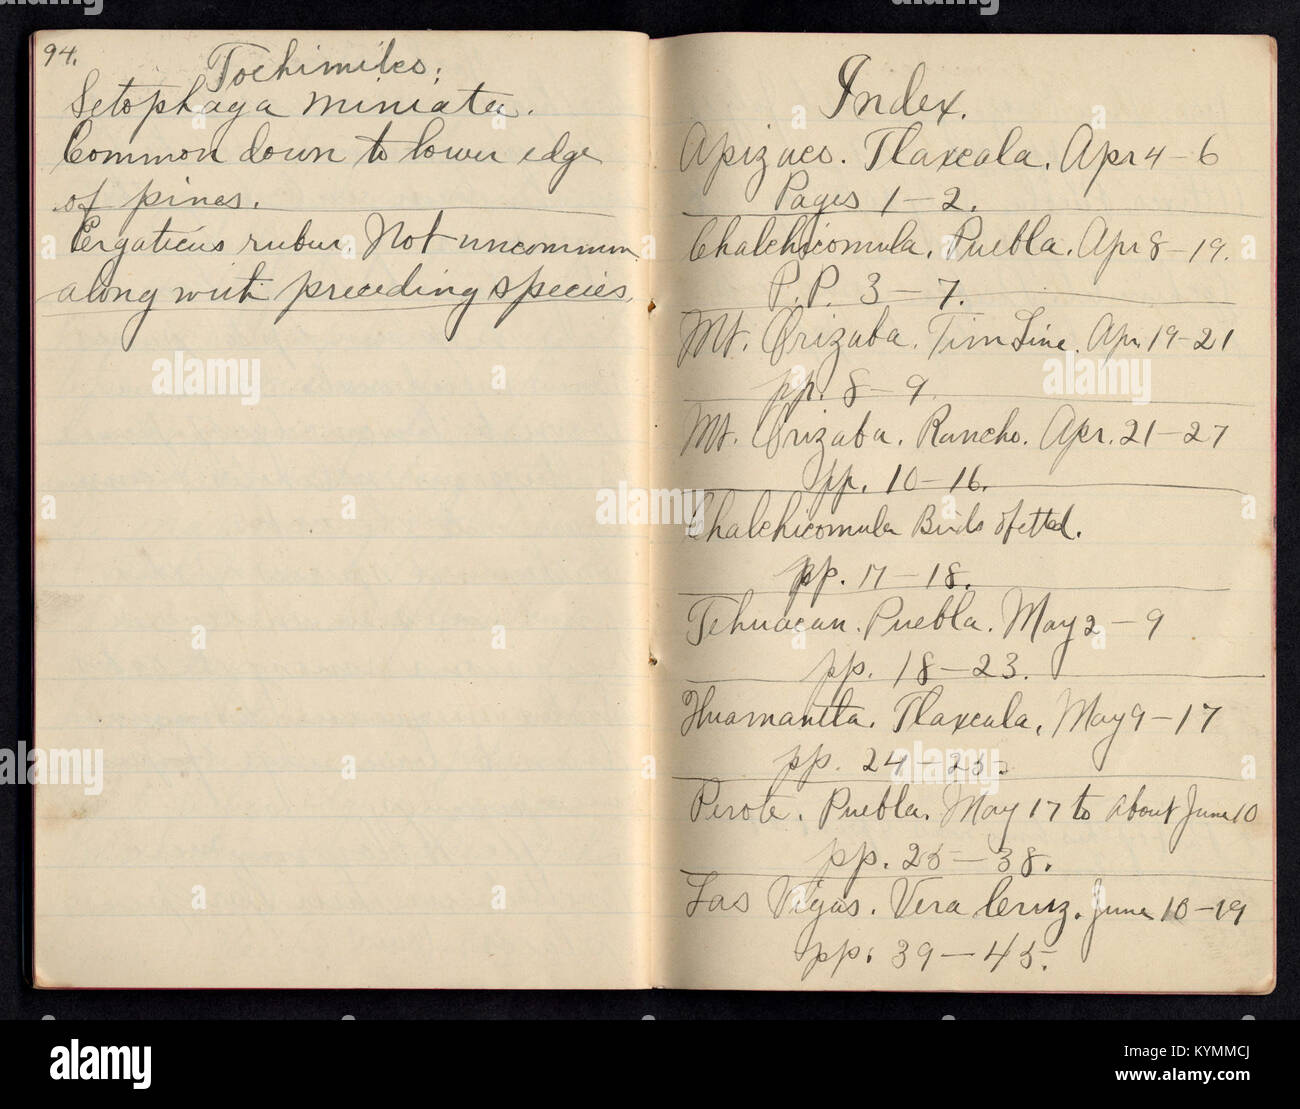 94.
Tochimilco;
Setophaga miniata.
Common down to lower edge
of pines.
Ergaticus ruber. Not uncommon
along with preceding species.
Index.
Apizaco. Tlaxcala. Apr 4-6
Pages 1-2.
Chalchicomula. Puebla. Apr 8-19.
P.P. 3-7.
Mt. Orizaba. Tim Line. Apr. 19-21
pp. 8-9.
Mt. Orizaba. Rancho. Apr. 21-27
pp. 10-16.
Chalchicomula Birds of etcd.
pp. 17-18.
Tehuacan. Puebla. May 2-9
pp. 18-23.
Huamantla. Tlaxcala. May 9-17
pp. 24-25.
Perote. Puebla. May 17 to about June 10
pp. 25-38.
Las Vigas. Vera Cruz. June 10-19
pp. 39-45.
alamy stock photo
alamy
alamy
alamy
alamy
alamy
alamy
Image ID: KYMMCJ
www.alamy.com